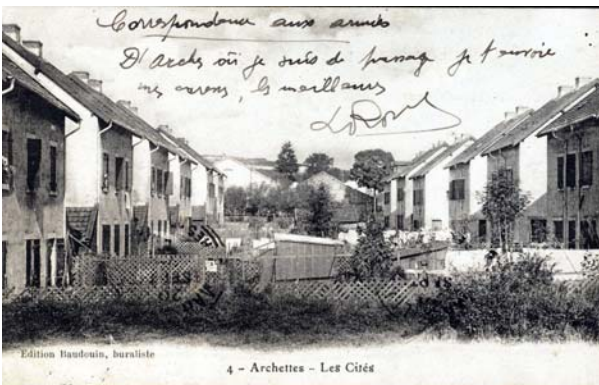 Correspondance aux armées
D'Arches où je suis de passage je t'envoie
mes , les meilleurs
Edition Baudouin, buraliste
4 - Archettes - Les Cités